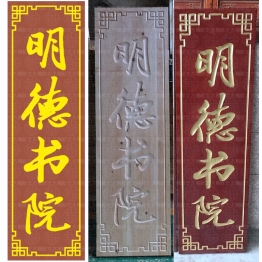 明德书院
明德书院
明德书院